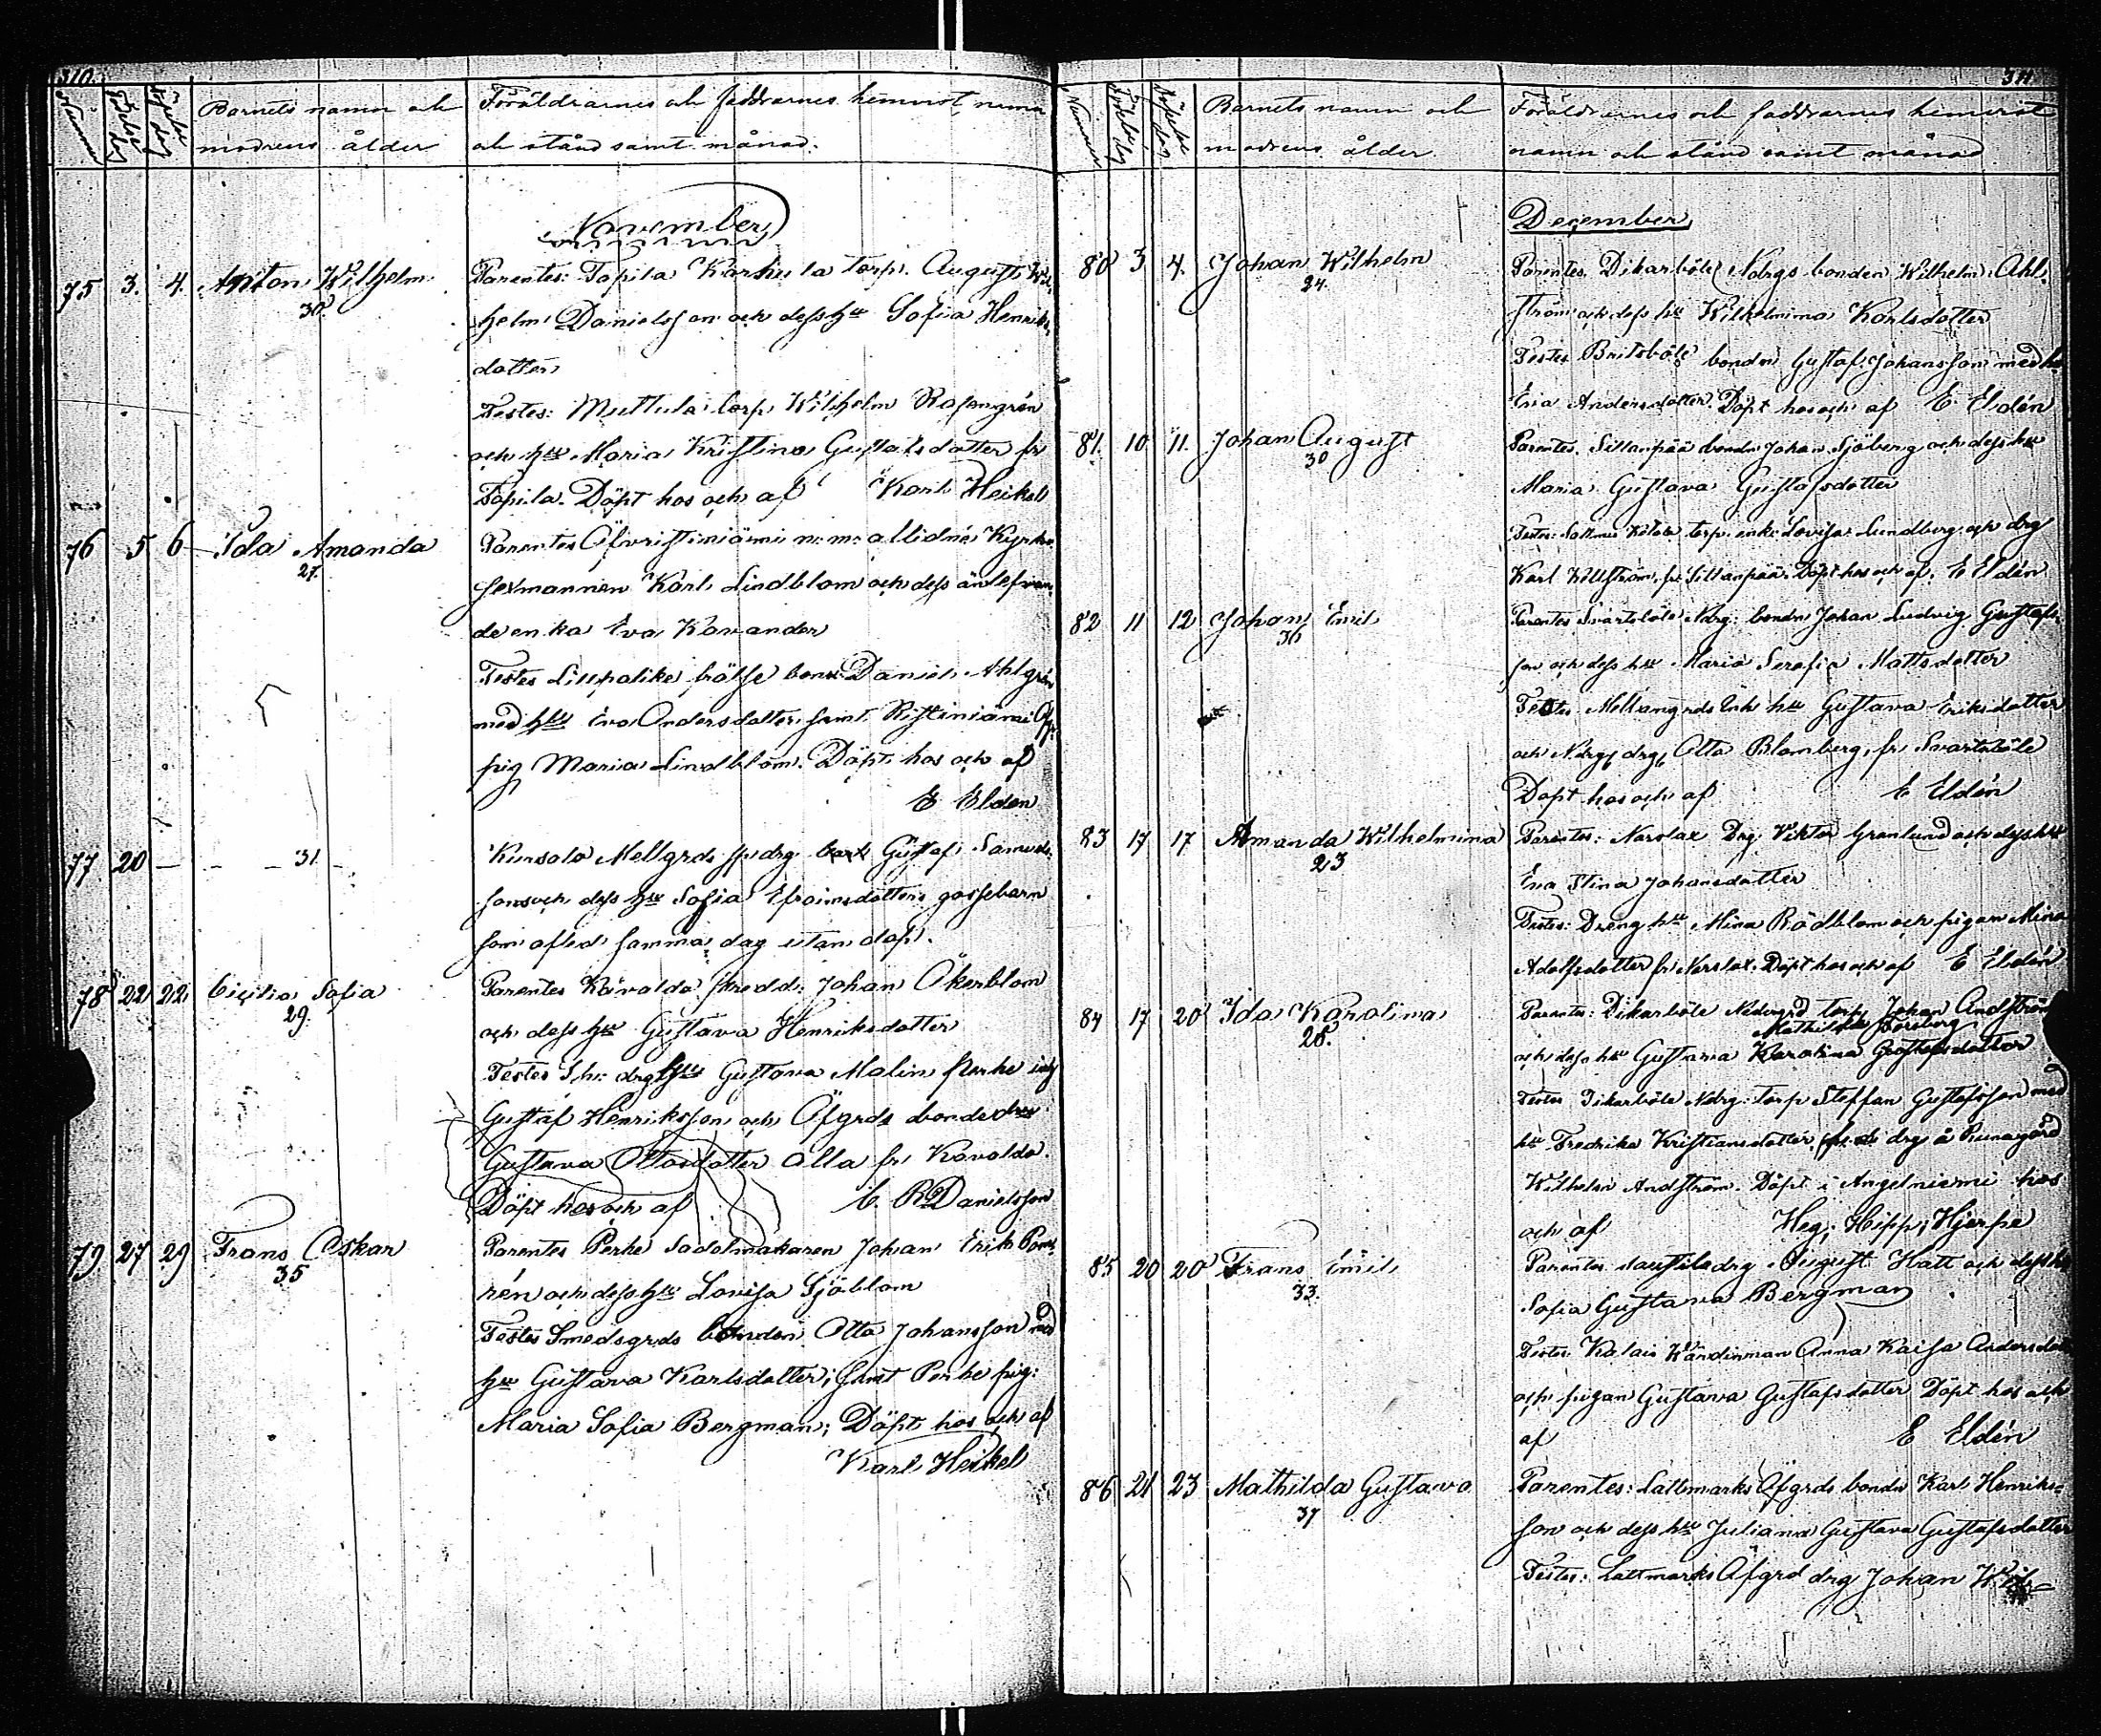 310.
Nummer
Födelse dag
Döpelse dag
Barnets namn och
modrens ålder
Föräldrarnes och faddrarnes hemvist, namn
och stånd samt månad.
November
75 3. 4. Anton Wilhelm
30
Parentes: Tapila Karhula torp. August Wil,
helm Danielsson och dess hu Sofia Henriks,
dotter
Testes: Muttula torp Wilhelm Rosengrén
och hu Maria Kristina Gustafsdotter fr
Tapila. Döpt hos och af Karl Heikel
76 5 6 Ida Amanda
27.
Parentes Öfvristiniämi Kyrko
sexmannen Karl Lindblom och dess änlefvan
de enka Eva Kavander
Testes Liupalike bonde Daniel Ahlgrén
med hu Eva Andersdotter samt Ristiniämi
pig Maria Lindblom. Döpt hos och af
E Eldén
77 20 — — — 31. —
Kinsala Mellgrds drg Gustaf Samuels
sons och dess hu Sofia Efraimsdotters gossebarn
som afled samma dag utan dop.
78 22 22 Cicilia Sofia
29.
Parentes Kävalda skredd: Johan Åkerblom
och dess hu Gustava Henriksdotter
Testes drg hu Gustava Malin Perhe
Gustaf Henriksson och Öfgrds bonde
Gustava Ottosdotter alla fr Kävalda.
Döpt hos och af C. R Danielsson
79 27 29 Frans Oskar
35
Parentes Perhe Sadelmakaren Johan Erik
rén och dess hu Lovisa Sjöblom
Testes Smedsgrds bonden Otto Johansson med
hu Gustava Karlsdotter; samt Perhe pig:
Maria Sofia Bergman; Döpt hos och af
Karl Heikel
311
Nummer
Födelse dag
Döpelse dag
Barnets namn och
modrens ålder
Föräldrarnes och faddrarnes hemvist
namn och stånd samt månad
December
80 3 4. Johan Wilhelm
24.
Parentes. Dikarböle Ndrgs bonden Wilhelm Ahl,
ström och dess hu Wilhelmina Karlsdotter
Testes Britsböle bonden Gustaf Johansson med hu
Eva Andersdotter Döpt hos och af E. Eldén
81. 10 11. Johan August
30
Parentes. Sillanpää bonden Johan Sjöberg och dess hu
Maria Gustava Gustafsdotter
Testes: torp. enk: Lovisa Lundberg och drg
Karl Killström fr Sillanpää. Döpt hos och af. E Eldén
82 11 12 Johan Emil
36
Parentes Svartsböle Ndrg: bonden Johan Ludvig Gustafs,
son och dess hu Maria Serafia Mattsdotter
Testes Mellangrds hu Gustava Eriksdotter
och Ndrg drg Otto Blomberg, fr Svartsböle
Döpt hos och af E Eldén
83 17 17 Amanda Wilhelmina
23
Parentes: Norrlax Drg Viktor Granlund och dess hu
Eva Stina Johansdotter
Testes: Dreng hu Mina Rödblom och pigan Mina
Adolfsdotter fr Norrlax. Döpt hos och af E Eldén
84 17 20 Ida Karolina
28.
Parentes: Dikarböle Nedergrd torp Johan Andström
Mathilda Forsberg
och dess hu Gustava Karolina Gustafsdotter
Testes Dikarböle Ndrg: torp Steffan Gustafsson med
hu Fredrika Kristiansdotter, drg å Runagård
Wilhelm Andström. Döpt i Angelniemi hos
och af Heg; Hipp; Hjerpe
85 20 20 Frans Emil
33.
Parentes drg August Hatt och dess hu
Sofia Gustava Bergman
Testes Kalais Anna Kaisa Andersdotter
och pigan Gustava Gustafsdotter Döpt hos och
af E Eldén
86 21 23 Mathilda Gustava
37
Parentes: Lattmarks Öfgrds bonde Karl Henriks=
son och dess hu Juliana Gustava Gustafsdotter
Testes: Lattmarks Öfgrd drg Johan